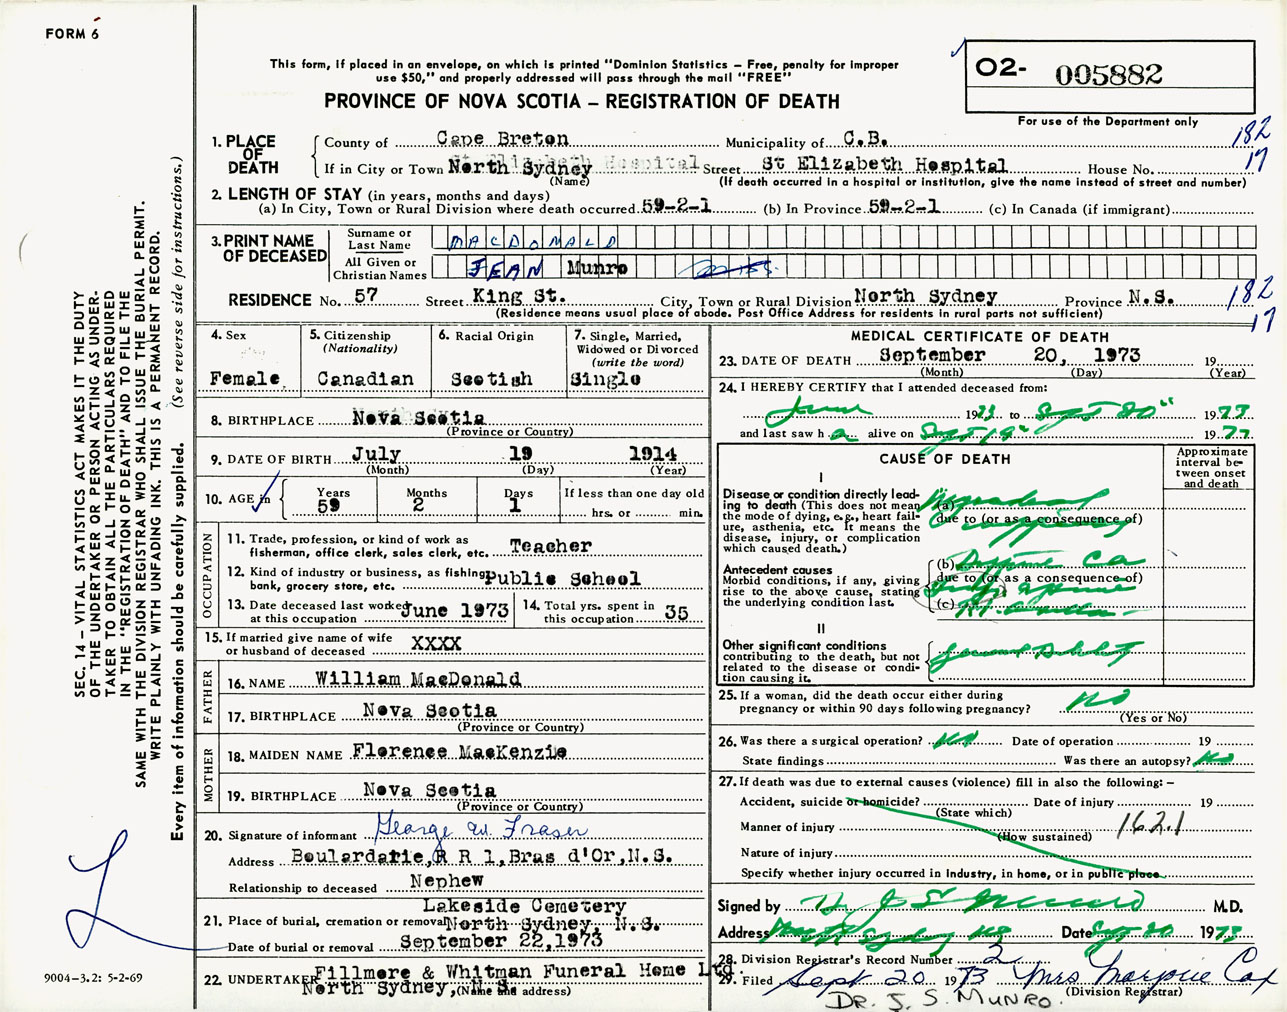 FORM 6
This form, if placed in an envelope, on which is printed "Dominion Statistics – Free, penalty for improper
use $50," and properly addressed will pass through the mail "FREE"
PROVINCE OF NOVA SCOTIA – REGISTRATION OF DEATH
O2- 005882
For use of the Department only
182
17
1. PLACE OF DEATH
County of Cape Breton Municipality of C.B.
If in City or Town North Sydney Street St Elizabeth Hospital House No.
(Name) (If death occurred in a hospital or institution, give the name instead of street and number)
2. LENGTH OF STAY (in years, months and days)
(a) In City, Town or Rural Division where death occurred 59-2-1 (b) In Province 59-2-1 (c) In Canada (if immigrant)
3. PRINT NAME OF DECEASED
Surname or Last Name MACDONALD
All Given or Christian Names JEAN Munro
RESIDENCE No. 57 Street King St. City, Town or Rural Division North Sydney Province N.S.
(Residence means usual place of abode. Post Office Address for residents in rural parts not sufficient)
182
17
4. Sex
Female
5. Citizenship
(Nationality)
Canadian
6. Racial Origin
Scotish
7. Single, Married,
Widowed or Divorced
(write the word)
Single
8. BIRTHPLACE Nova Scotia
(Province or Country)
9. DATE OF BIRTH July 19 1914
(Month) (Day) (Year)
10. AGE in
Years 59
Months 2
Days 1
If less than one day old
hrs. or min.
OCCUPATION
11. Trade, profession, or kind of work as
fisherman, office clerk, sales clerk, etc. Teacher
12. Kind of industry or business, as fishing,
bank, grocery store, etc. Public School
13. Date deceased last worked
at this occupation June 1973
14. Total yrs. spent in
this occupation 35
15. If married give name of wife
or husband of deceased XXXX
FATHER
16. NAME William MacDonald
17. BIRTHPLACE Nova Scotia
(Province or Country)
MOTHER
18. MAIDEN NAME Florence MacKenzie
19. BIRTHPLACE Nova Scotia
(Province or Country)
20. Signature of informant George W. Fraser
Address Boulardarie, R R 1, Bras d'Or, N.S.
Relationship to deceased Nephew
21. Place of burial, cremation or removal Lakeside Cemetery
North Sydney, N.S.
Date of burial or removal September 22, 1973
22. UNDERTAKER Fillmore & Whitman Funeral Home Ltd.
North Sydney, N.S.
(Name and address)
MEDICAL CERTIFICATE OF DEATH
23. DATE OF DEATH September 20, 1973 19
(Month) (Day) (Year)
24. I HEREBY CERTIFY that I attended deceased from:
June 1973 to Sept 20" 1977
and last saw h alive on Sept 19" 1977
CAUSE OF DEATH
Approximate
interval be-
tween onset
and death
I
Disease or condition directly lead-
ing to death (This does not mean
the mode of dying, e.g., heart fail-
ure, asthenia, etc. It means the
disease, injury, or complication
which caused death.)
(a)
due to (or as a consequence of)
Antecedent causes
Morbid conditions, if any, giving
rise to the above cause, stating
the underlying condition last.
(b) Ca
due to (or as a consequence of)
(c)
II
Other significant conditions
contributing to the death, but not
related to the disease or condi-
tion causing it.
General Debility
25. If a woman, did the death occur either during
pregnancy or within 90 days following pregnancy? No
(Yes or No)
26. Was there a surgical operation? No Date of operation 19
State findings Was there an autopsy? No
27. If death was due to external causes (violence) fill in also the following: –
Accident, suicide or homicide? Date of injury 19
(State which)
Manner of injury 162.1
(How sustained)
Nature of injury
Specify whether injury occurred in industry, in home, or in public place
Signed by M.D.
Address North Sydney NS Date Sept 20 1973
28. Division Registrar's Record Number 2
29. Filed Sept 20 1973 Mrs Marjorie Cox
(Division Registrar)
DR. J. S. MUNRO.
SEC. 14 – VITAL STATISTICS ACT MAKES IT THE DUTY
OF THE UNDERTAKER OR PERSON ACTING AS UNDER-
TAKER TO OBTAIN ALL THE PARTICULARS REQUIRED
IN THE "REGISTRATION OF DEATH" AND TO FILE THE
SAME WITH THE DIVISION REGISTRAR WHO SHALL ISSUE THE BURIAL PERMIT.
WRITE PLAINLY WITH UNFADING INK. THIS IS A PERMANENT RECORD.
Every item of information should be carefully supplied. (See reverse side for instructions.)
9004-3.2: 5-2-69